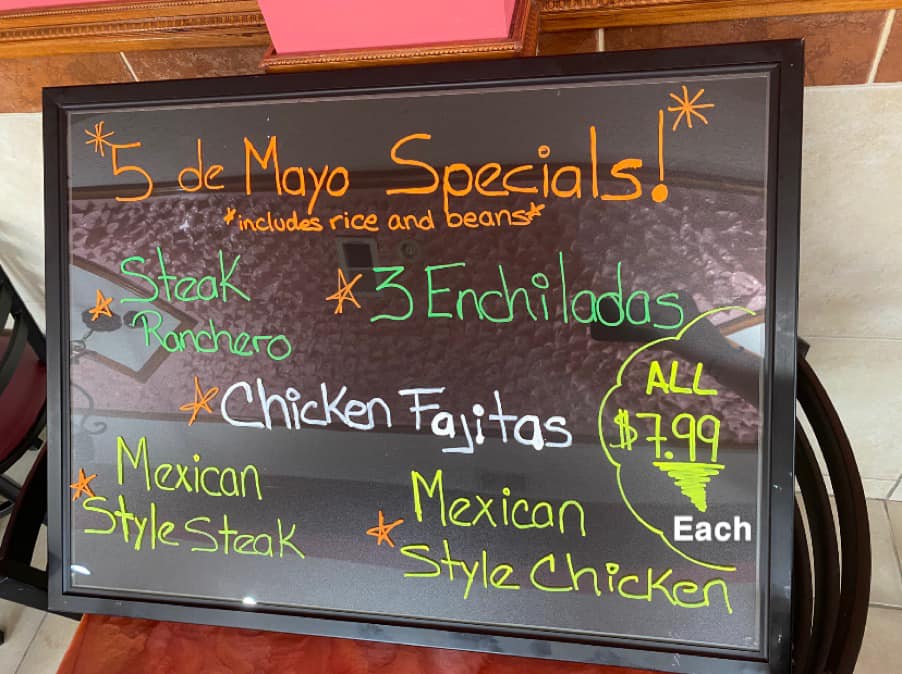 5 de Mayo Specials!
*includes rice and beans*
Steak
Ranchero
3 Enchiladas
Chicken Fajitas
ALL
$7.99
Each
Mexican
Style Steak
Mexican
Style Chicken